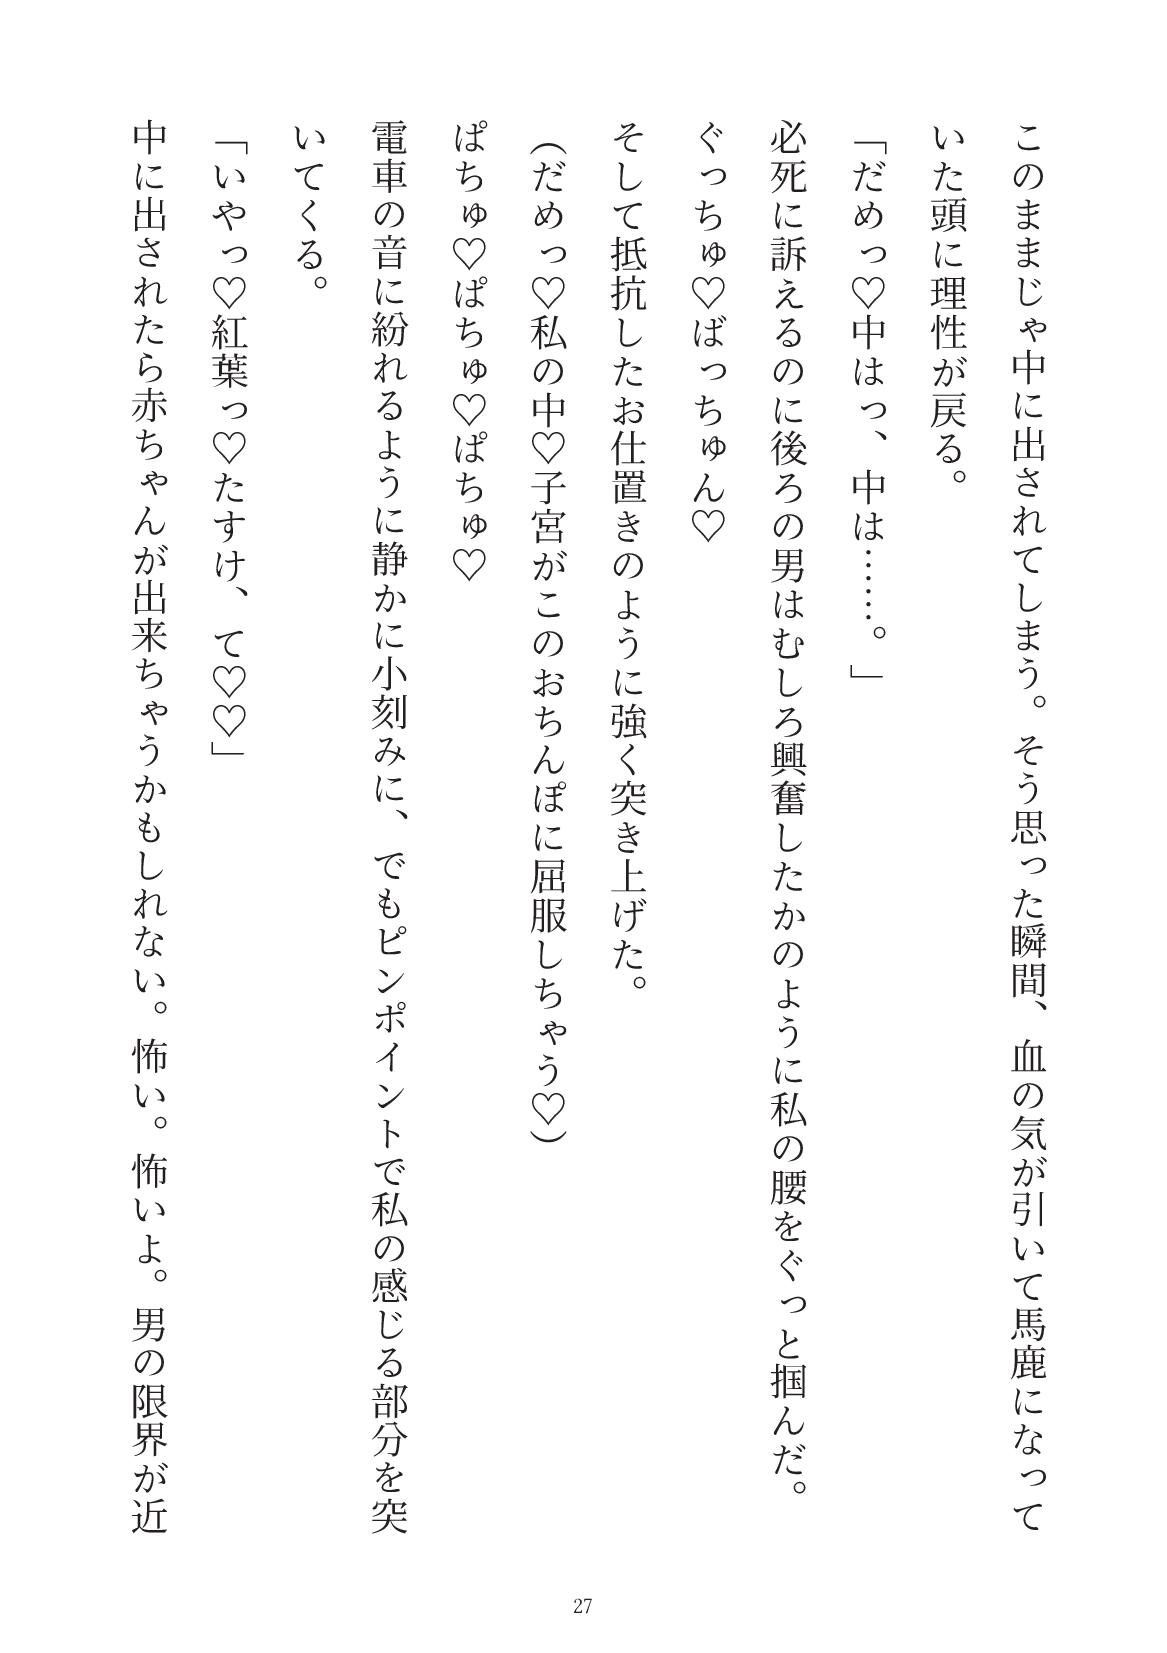 このままじゃ中に出されてしまう。そう思った瞬間、血の気が引いて馬鹿になって
いた頭に理性が戻る。
「だめっ♡中はっ、中は……。」
必死に訴えるのに後ろの男はむしろ興奮したかのように私の腰をぐっと掴んだ。
ぐっちゅ♡ばっちゅん♡
そして抵抗したお仕置きのように強く突き上げた。
（だめっ♡私の中♡子宮がこのおちんぽに屈服しちゃう♡）
ぱちゅ♡ぱちゅ♡ぱちゅ♡
電車の音に紛れるように静かに小刻みに、でもピンポイントで私の感じる部分を突
いてくる。
「いやっ♡紅葉っ♡たすけ、て♡♡」
中に出されたら赤ちゃんが出来ちゃうかもしれない。怖い。怖いよ。男の限界が近
27